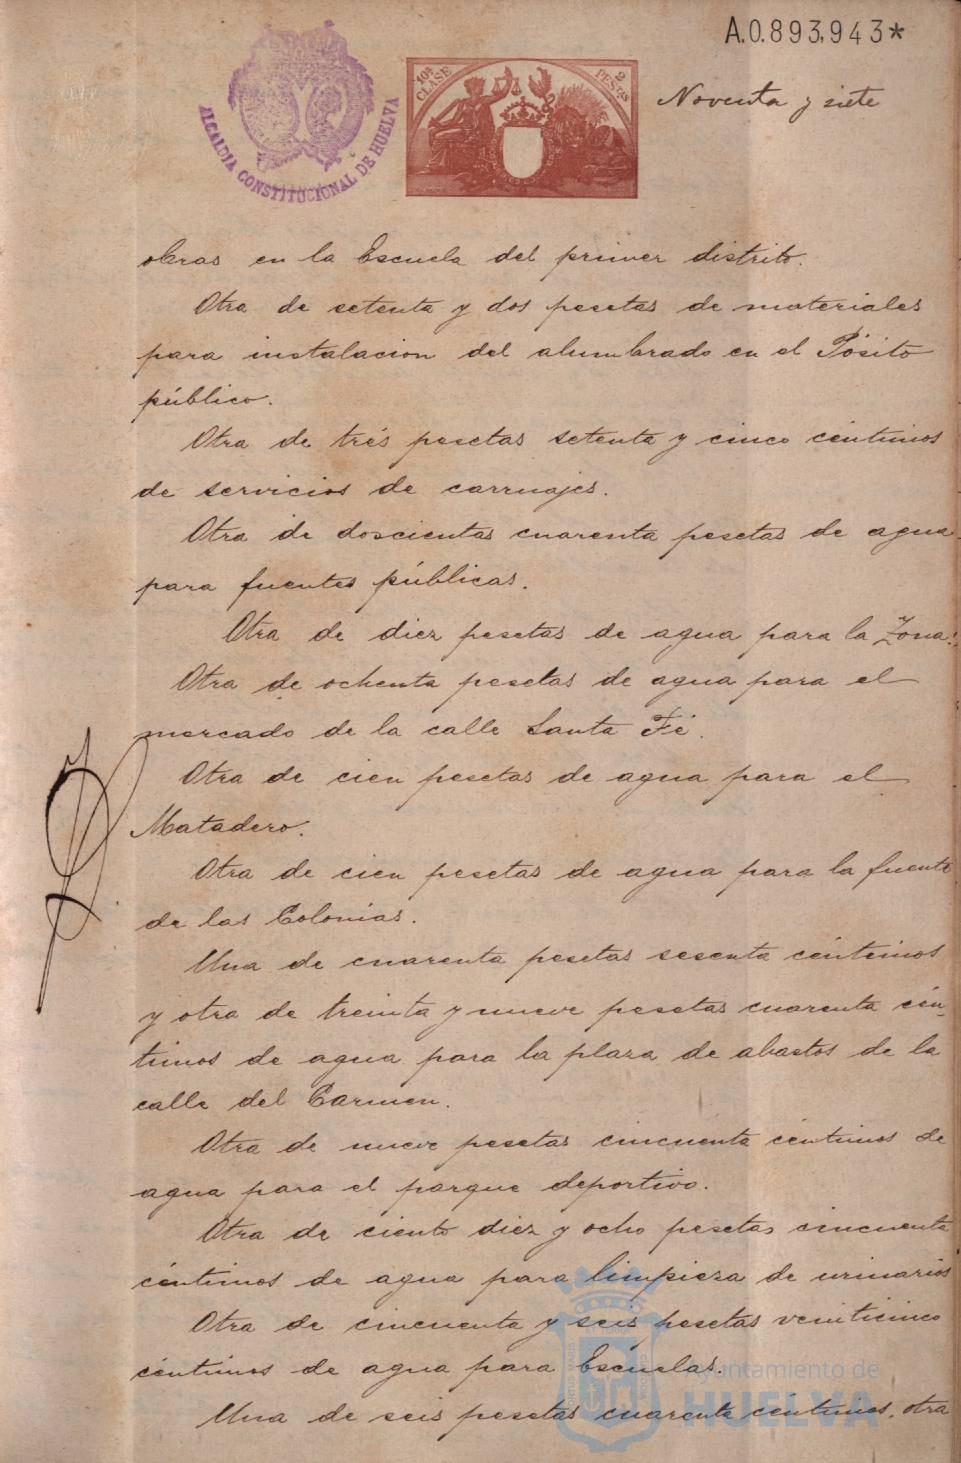 A.0.893,943*
10ª CLASE
2 PESTAS
Noventa y siete
ALCALDIA CONSTITUCIONAL DE HUELVA
obras en la Escuela del primer distrito.
Otra de setenta y dos pesetas de materiales
para instalacion del alumbrado en el Pósito
público.
Otra de trés pesetas setenta y cinco céntimos
de servicios de carruajes.
Otra de doscientas cuarenta pesetas de agua
para fuentes públicas.
Otra de diez pesetas de agua para la Zona.
Otra de ochenta pesetas de agua para el
mercado de la calle Santa Fé.
Otra de cien pesetas de agua para el
Matadero.
Otra de cien pesetas de agua para la fuente
de las Colonias.
Una de cuarenta pesetas sesenta céntimos
y otra de treinta y nueve pesetas cuarenta cén-
timos de agua para la plaza de abastos de la
calle del Carmen.
Otra de nueve pesetas cincuenta céntimos de
agua para el parque deportivo.
Otra de ciento diez y ocho pesetas cincuenta
céntimos de agua para limpieza de urinarios
Otra de cincuenta y seis pesetas veinticinco
céntimos de agua para Escuelas.
Una de seis pesetas cuarenta céntimos, otra
Ayuntamiento de
HUELVA